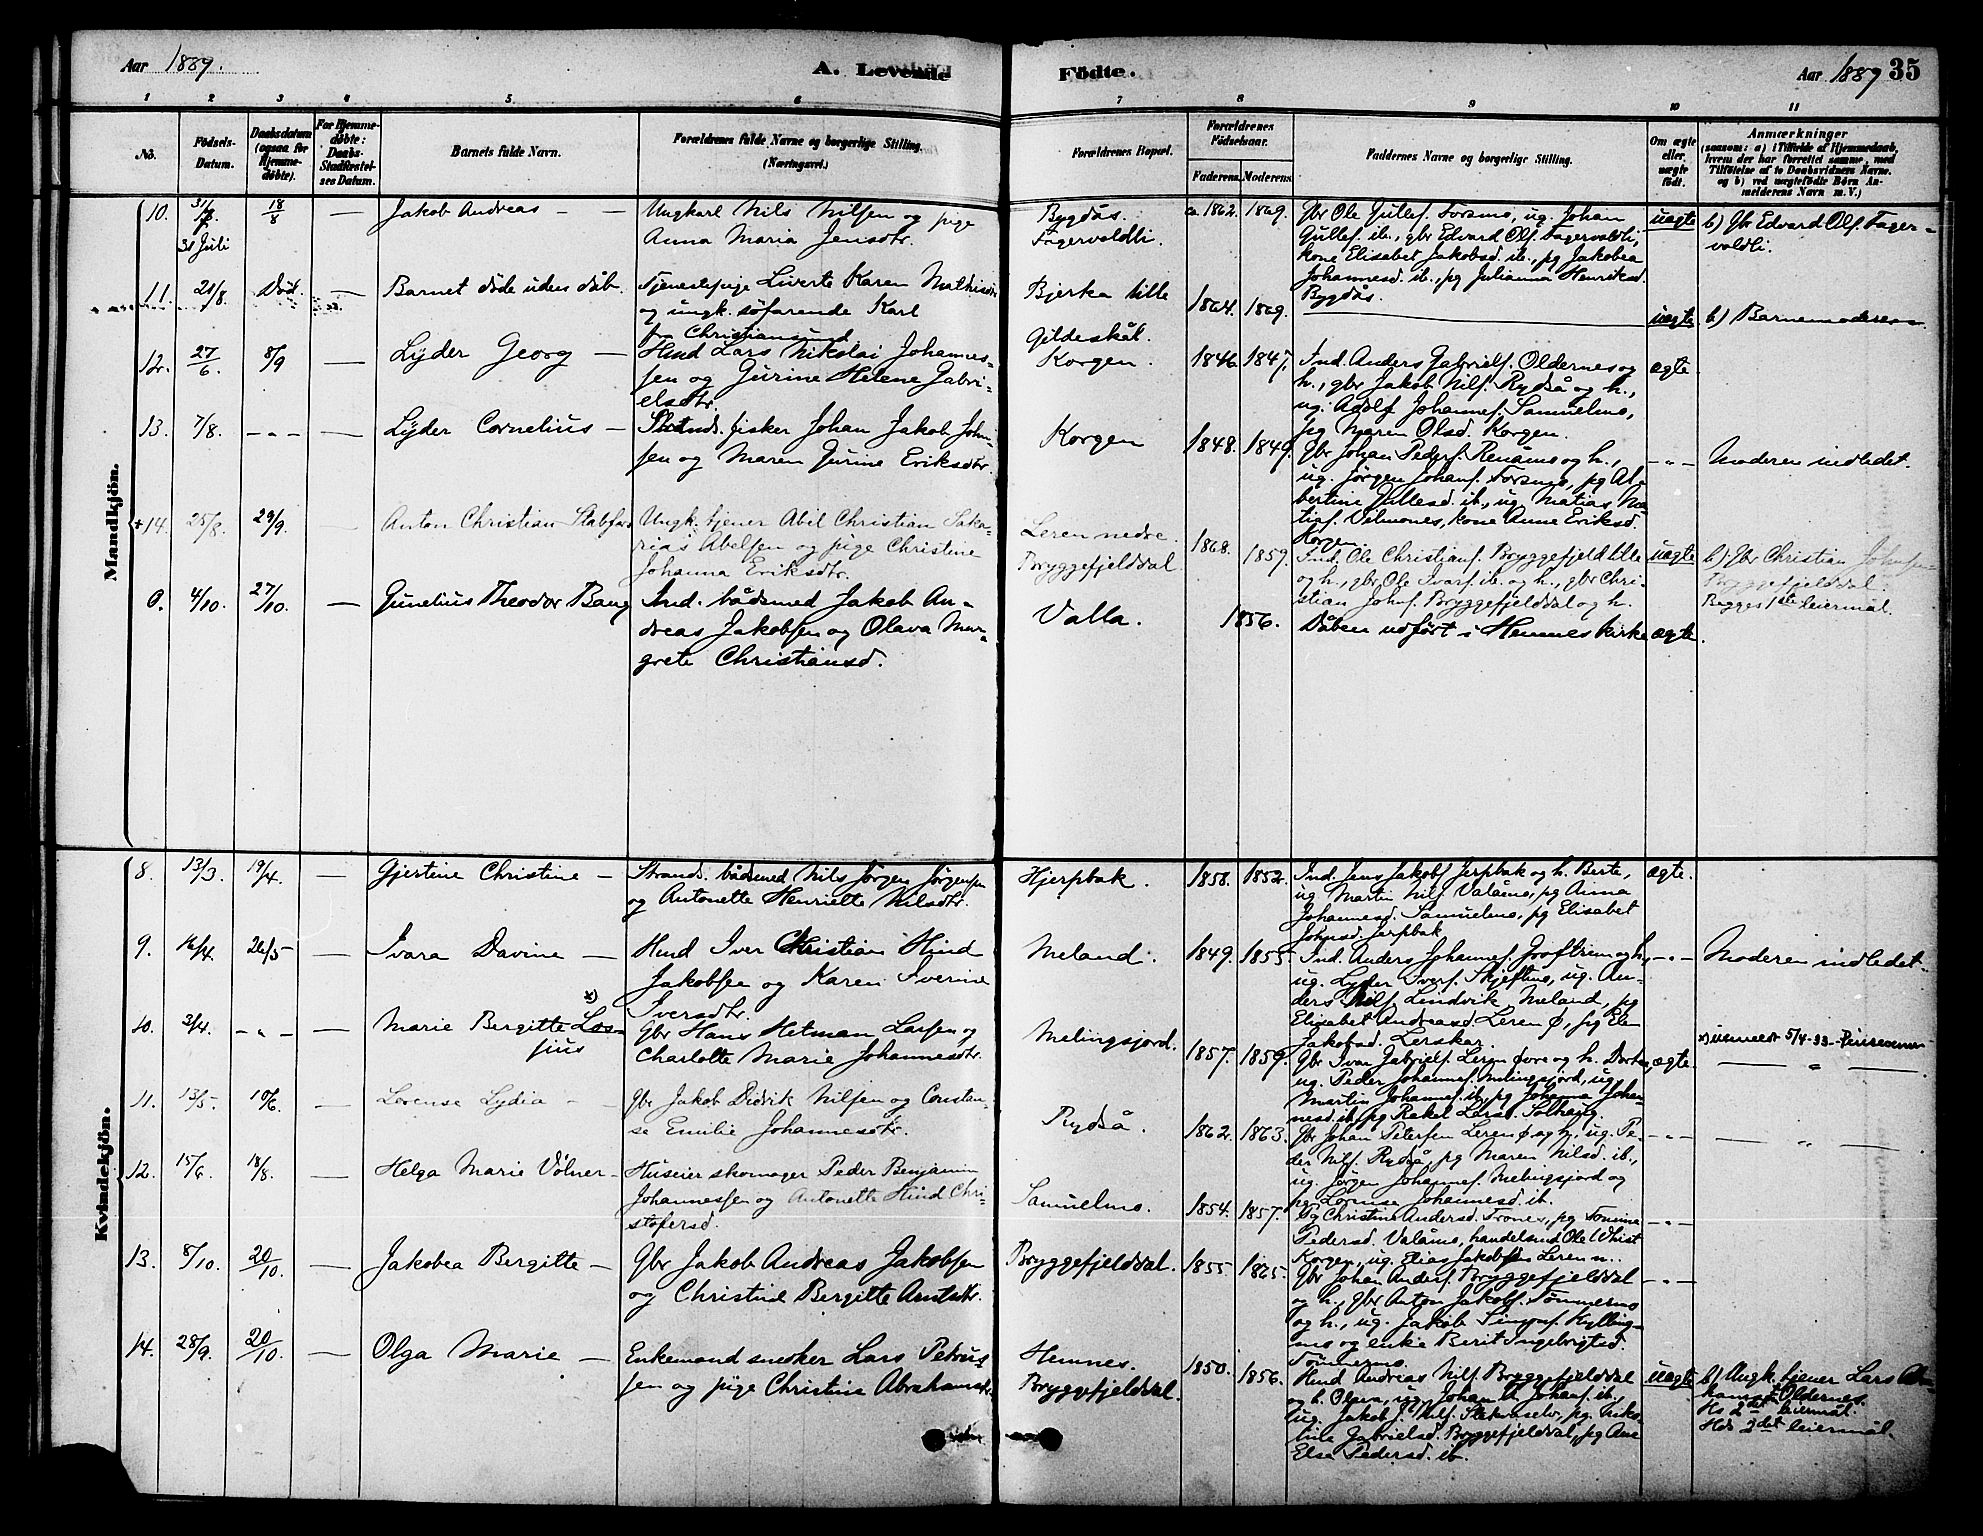 Aar 1889.
A. Levende Födte.
Aar 1889 35
1 2 3 4 5 6 7 8 9 10 11
No.
Födsels-
Datum.
Daabsdatum
(ogsaa for
Hjemme-
döbte).
For Hjemme-
döbte:
Daabs-
Stadfæstel-
ses Datum.
Barnets fulde Navn.
Forældrenes fulde Navne og borgerlige Stilling.
(Næringsvei.)
Forældrenes Bopæl.
Forældrenes
Födselsaar.
Faderens. Moderens.
Faddernes Navne og borgerlige Stilling.
Om ægte
eller
uægte
födt.
Anmærkninger
(saasom: a) i Tilfælde af Hjemmedaab,
hvem der har forrettet samme, med
Tilföielse af to Daabsvidners Navne.
og b) ved uægtefödte Börn An-
melderens Navn m. V.)
Mandkjön.
10. 31 Juli 18/8 — Jakob Andreas — —
Ungkarl Nils Nilsen og pige
Anna Maria Jensdtr.
Bygdås.
Fagervoldli.
ca. 1862. 1869.
Gbr Ole Gullef. Forsmo, ug. Johan
Gullef. ib., gbr Edvard Olf. Fagervoldli,
kone Elisabet Jakobsd. ib., pg Jakobea
Johannesd. ib., pg Julianna Henriksd.
Bygdås.
uægte
b) Gbr Edvard Olf. Fager-
voldli.
11. 21/8. Död — Barnet döde uden dåb.
Tjenestepige Liverte Karen Mathisdtr
og ungk. söfarende Karl
fra Christiansund
Bjerka lille
Gildeskål.
1864. 1869.
uægte b) Barnemoderen
12. 27/6. 8/9 — Lyder Georg —
Hmd Lars Nikolai Johannes-
sen og Gurine Helene Gabri-
elsdtr.
Korgen
1846. 1847.
Ind. Anders Gabrielf. Oldernes og
h., gbr Jakob Nilf. Rydså og h.,
ug. Adolf Johannesf. Samuelmo,
pg Maren Olsd. Korgen.
ægte
13. 7/8. - " - — Lyder Cornelius —
fisker Johan Jakob John-
sen og Maren Gurine Eriksdtr.
Korgen
1848. 1849.
Gbr Johan Pederf. Renåmo og h.,
ug. Jörgen Johanf. Forsmo, pg Al-
bertine Gullesd. ib., ug Matias Ma-
tiaf. Vilmones, kone Anne Eriksd.
Korgen.
- " - Moderen indledet.
+14. 25/8. 29/9 — Anton Christian Stabfors
Ungk. tjener Abil Christian Saka-
rias Abelsen og pige Christine
Johanna Eriksdtr.
Leren nedre.
Bryggefjelddal
1868. 1859.
Ind. Ole Christianf. Bryggefjeld lille
og h., gbr Ole Ivarf. ib. og h., gbr Chri-
stian Johnf. Bryggefjelddal og h.
uægte
b) Gbr Christian Johnsen
Bryggefjelddal.
Begges 1ste leiermål.
0. 4/10. 27/10. — Gunelius Theodor Bang
Ind. bådsmed Jakob An-
dreas Jakobsen og Olava Mar-
grete Christiansd.
Valla.
1856.
Dåben udfört i Hemnes kirke
ægte.
Kvindekjön.
8. 13/3. 19/4. — Gjertine Christine —
Strands. bådsmed Nils Jörgen Jörgensen
og Antonette Henriette Nilsdtr.
Hjerpbak.
1858. 1852.
Ind. Jens Jakobf Jerpbak og h. Berte,
ug Martin Nilf Valåmo, pg Anna
Johannesd. Samuelmo, pg Elisabet
Johnsd. Jerpbak
ægte.
9. 16/4 26/5 — Ivara Davine —
Hmd Iver Christian Hind
Jakobsen og Karen Iverine
Iversdtr.
Meland.
1849. 1855.
Ind. Anders Johannesf. og h,
ug. Lyder Iverf. Skjeftmo, ug. An-
ders Nilf. Lindvik Meland, pg
Elisabet Andreasd. Leren ø, pg Elen
Jakobsd. Lerskar.
- " - Moderen indledet.
10. 3/4. - " - — Marie Bergitte Las- x)
sius
Gbr Hans Hetman Larsen og
Charlotte Marie Johannesdtr.
Melingsjord.
1857. 1859.
Gbr Ivar Gabrielf. Leren övre og h. Dortea,
ug. Peder Johannesf. Melingsjord, ug.
Martin Johannesf. ib., pg Johanna Johan-
nesd. ib, pg Rakel Larsd. Solhaug.
ægte.
— " —
11. 13/5. 10/6. — Lorense Lydia —
Gbr Jakob Didrik Nilsen og Constan-
se Emilie Johannesdtr.
Rydså.
1862. 1863.
Gbr Johan Petersen Leren ø og h., ug. Pe-
der Nilf. Rydså, pg Maren Nilsd. ib.,
ug. Jörgen Johannesf. Melingsjord og
pg Lorense Johannesd. ib.
- " - — " —
12. 15/6. 18/8. — Helga Marie Völner —
Huseier skomager Peder Benjamin
Johannessen og Antonette Hind Chri-
stofersd.
Samuelmo.
1854. 1857.
Pg Christine Andersd. Trones, pg Tomine
Pedersd. Valåmo, handelsmd Ole Whist
Korgen, ug. Elias Jakobsen Leren n.
- " -
13. 8/10. 20/10. — Jakobea Bergitte —
Gbr Jakob Andreas Jakobsen
og Christine Bergitte Arntsdtr.
Bryggefjelddal.
1855. 1865.
Gbr Johan Anderf. Bryggefjelddal
og h., gbr Anton Jakobf. Tömmermo
og h., ug. Jakob Kylling-
mo og enke Berit Ingebrigtsd.
Tömmermo.
- " -
14. 28/9. 20/10. — Olga Marie —
Enkemand snedker Lars Petrus
sen og pige Christine Abrahamsdtr.
Hemnes.
Bryggefjelddal.
1850. 1856.
Hmd Andreas Nilf. Bryggefjelddal
og h. Olava, ug. Johan A Johanf. ib.
ug. Jakob J. Nilf. pg. Niko-
line Gabrielsd. Bryggefjelddal, pg Ane
Else Pedersd. ib.
uægte
b) Ungk. tjener Lars
Oldernes.
Hs 2det leiermål.
Hds 2det leiermål.